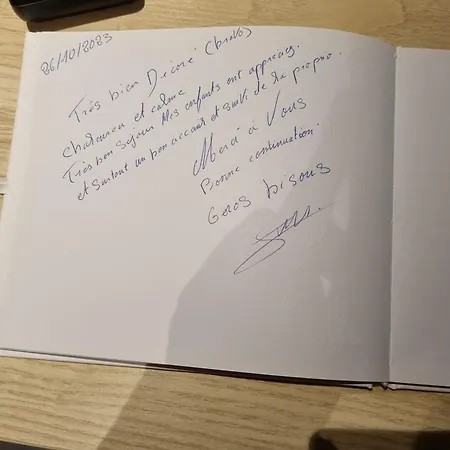 26/10/2023
Très bien Décoré (bravo)
chaleureux et calme
Très bon séjour Mes enfants ont appréciés.
et surtout un bon accueil et suivi de la proprio.
Merci à Vous
Bonne continuation.
Gros bisous